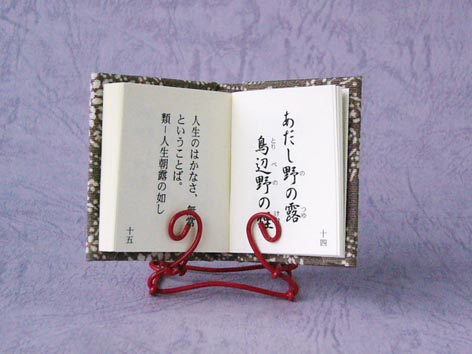 あだし野の露
の つゆ
鳥辺野の煙
とりべの け
十四
人生のはかなさ、無常
ということば。
類―人生朝露の如し
十五